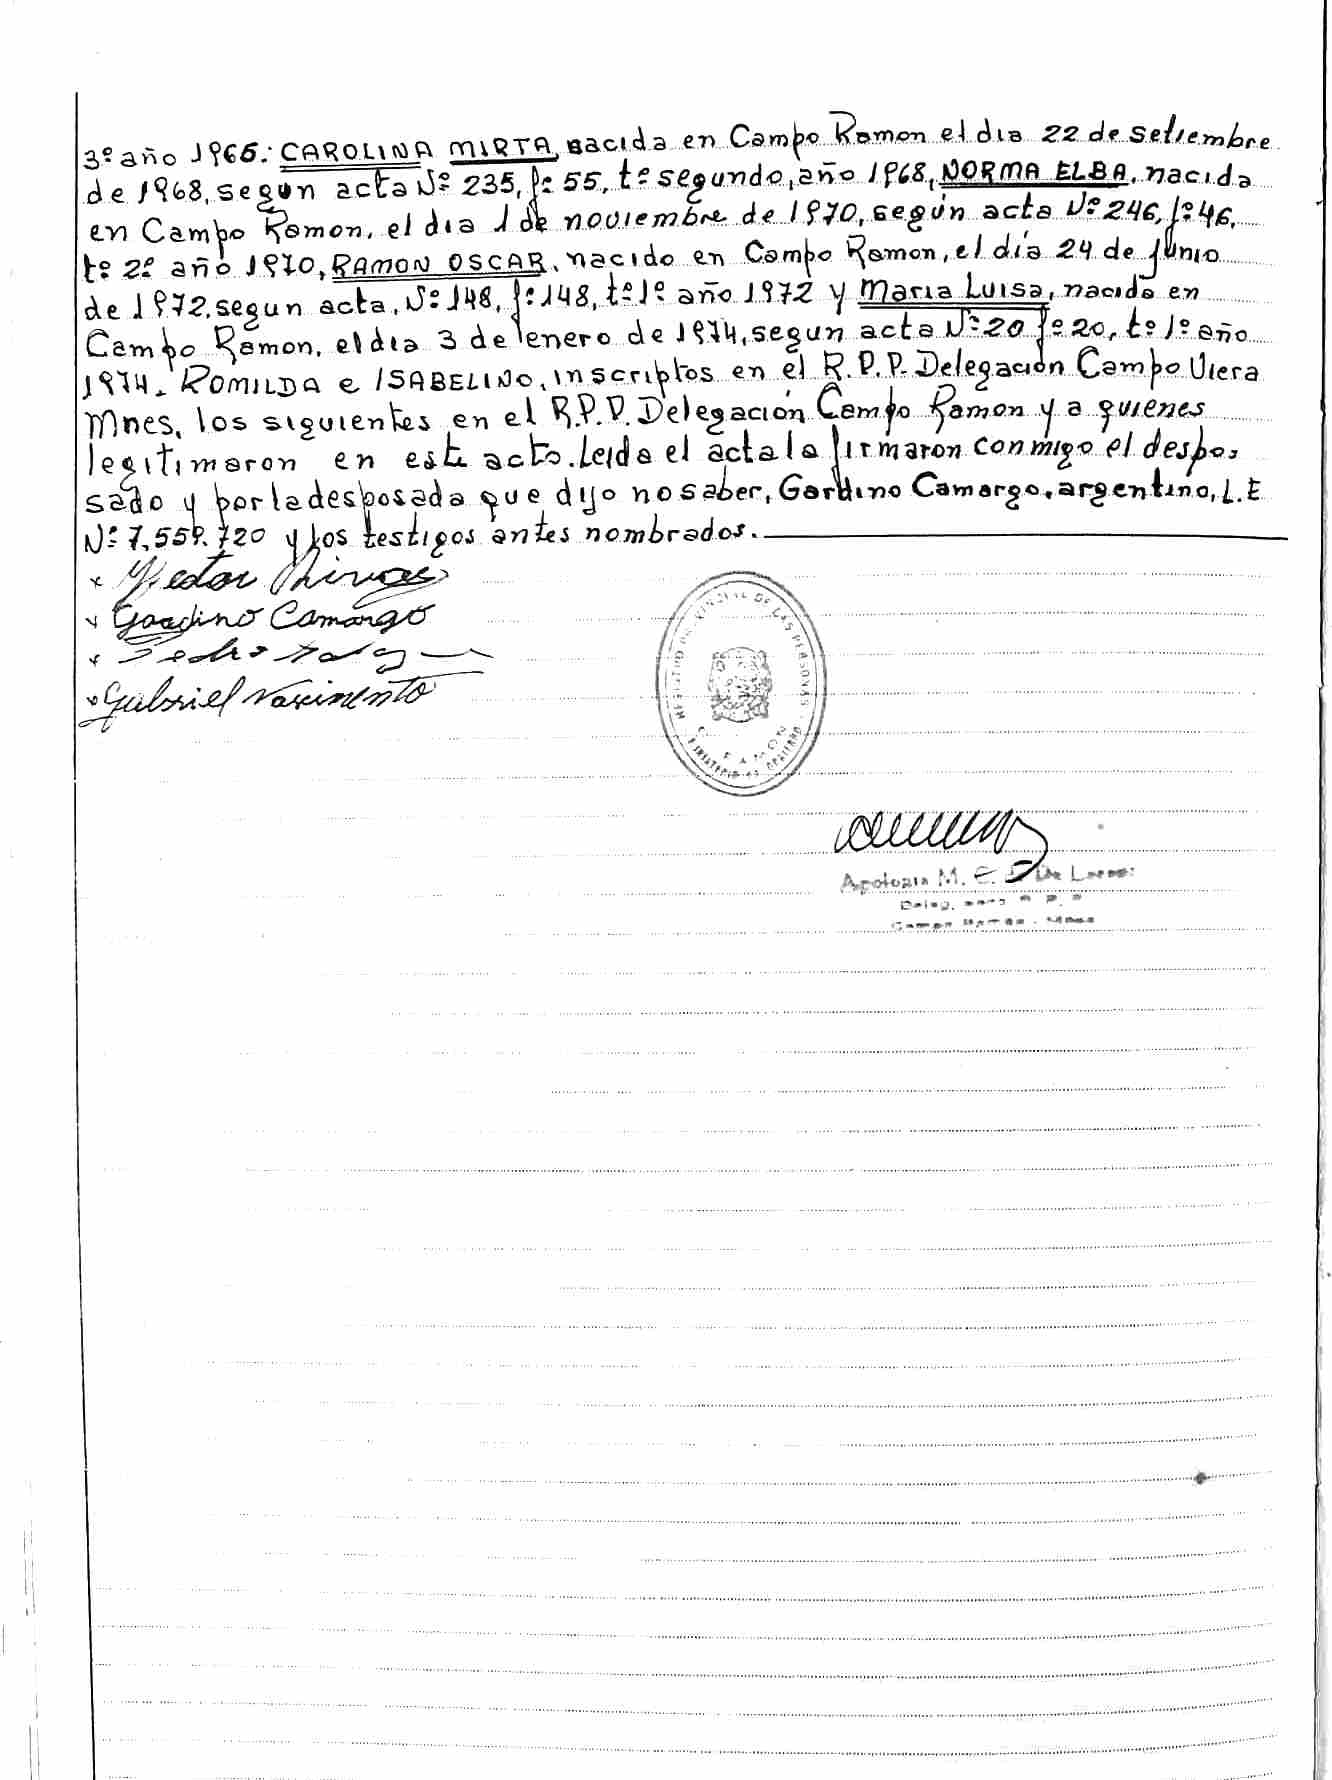 3º año 1965: CAROLINA MIRTA, nacida en Campo Ramon el dia 22 de setiembre
de 1968, segun acta Nº 235, fº 55, tº segundo, año 1968, NORMA ELBA, nacida
en Campo Ramon, el dia 1 de noviembre de 1970, según acta Nº 246, fº 46,
tº 2º año 1970, RAMON OSCAR, nacido en Campo Ramon, el día 24 de Junio
de 1972, segun acta, Nº 148, fº 148, tº 1º año 1972 y Maria Luisa, nacida en
Campo Ramon, el dia 3 de enero de 1974, segun acta Nº 20 fº 20, tº 1º año
1974. ROMILDA e ISABELINO, inscriptos en el R.P.P. Delegación Campo Viera
Mnes, los siguientes en el R.P.P. Delegación Campo Ramon y a quienes
legitimaron en este acto. Leida el acta la firmaron conmigo el despo-
sado y por la desposada que dijo no saber, Gardino Camargo, argentino, L.E
Nº 7.559.720 y los testigos antes nombrados.
Gardino Camargo
Pedro
Gabriel Nascimento
REGISTRO PROVINCIAL DE LAS PERSONAS
C. RAMON
MINISTERIO DE GOBIERNO
Apolonia M. De
Campo Ramón - Mnes